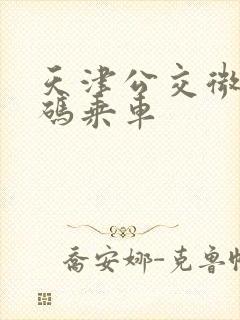 天津公交微
码乘車
喬安娜-克魯